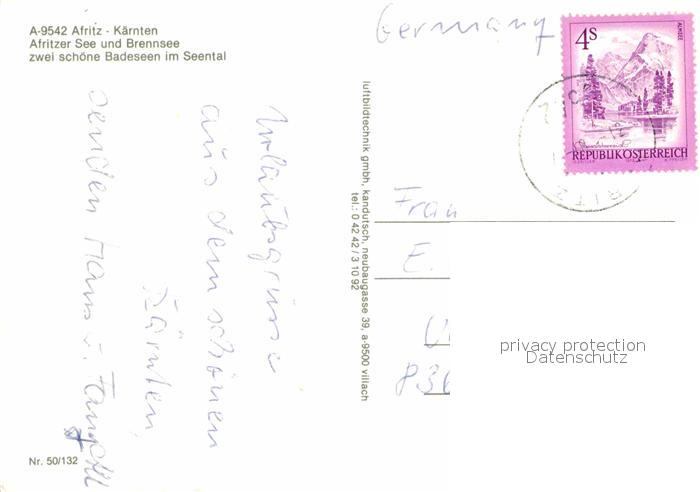 A-9542 Afritz · Kärnten
Afritzer See und Brennsee
zwei schöne Badeseen im Seental
Urlaubsgrüsse
aus dem schönen
Kärnten,
senden Hans u.
Nr. 50/132
luftbildtechnik gmbh, kandutsch, neubaugasse 39, a-9500 villach
tel.: 0 42 42 / 3 10 92
Germany
4S
ALMSEE
REPUBLIK ÖSTERREICH
Frau
E.
836
privacy protection
Datenschutz